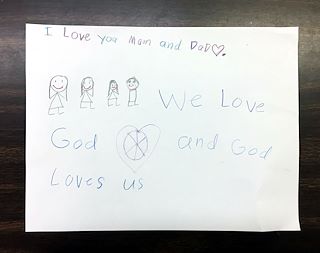 I Love you Mam and DaD♡.
We Love
God and God
Loves us